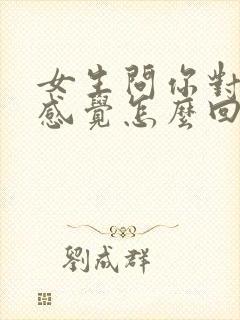 女生問你對
感覺怎麼回
劉成群